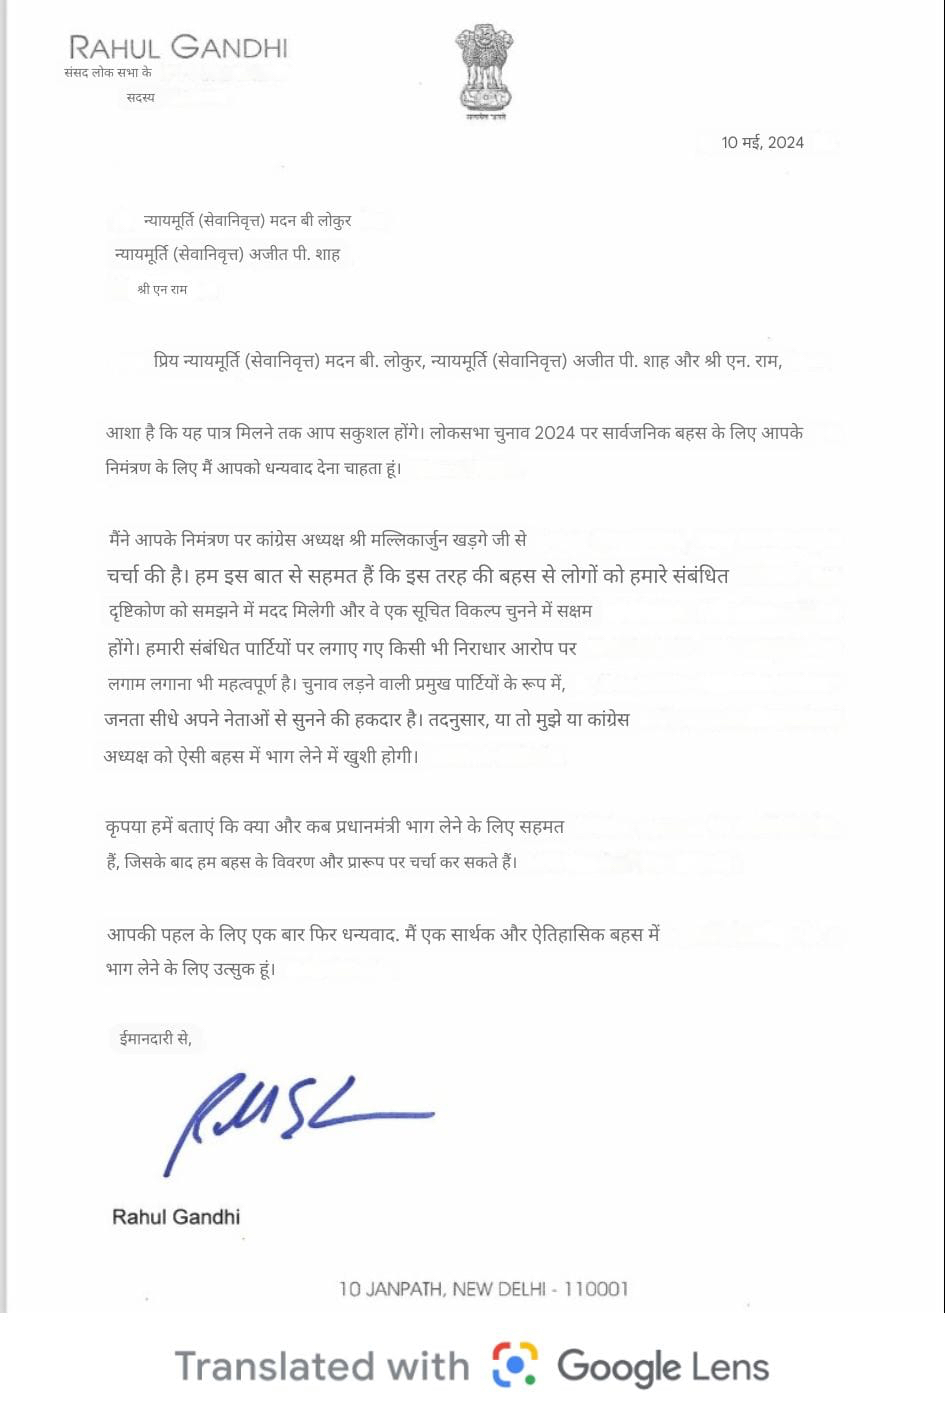 RAHUL GANDHI
संसद लोक सभा के
सदस्य
सत्यमेव जयते
10 मई, 2024
न्यायमूर्ति (सेवानिवृत्त) मदन बी लोकुर
न्यायमूर्ति (सेवानिवृत्त) अजीत पी. शाह
श्री एन राम
प्रिय न्यायमूर्ति (सेवानिवृत्त) मदन बी. लोकुर, न्यायमूर्ति (सेवानिवृत्त) अजीत पी. शाह और श्री एन. राम,
आशा है कि यह पात्र मिलने तक आप सकुशल होंगे। लोकसभा चुनाव 2024 पर सार्वजनिक बहस के लिए आपके
निमंत्रण के लिए मैं आपको धन्यवाद देना चाहता हूं।
मैंने आपके निमंत्रण पर कांग्रेस अध्यक्ष श्री मल्लिकार्जुन खड़गे जी से
चर्चा की है। हम इस बात से सहमत हैं कि इस तरह की बहस से लोगों को हमारे संबंधित
दृष्टिकोण को समझने में मदद मिलेगी और वे एक सूचित विकल्प चुनने में सक्षम
होंगे। हमारी संबंधित पार्टियों पर लगाए गए किसी भी निराधार आरोप पर
लगाम लगाना भी महत्वपूर्ण है। चुनाव लड़ने वाली प्रमुख पार्टियों के रूप में,
जनता सीधे अपने नेताओं से सुनने की हकदार है। तदनुसार, या तो मुझे या कांग्रेस
अध्यक्ष को ऐसी बहस में भाग लेने में खुशी होगी।
कृपया हमें बताएं कि क्या और कब प्रधानमंत्री भाग लेने के लिए सहमत
हैं, जिसके बाद हम बहस के विवरण और प्रारूप पर चर्चा कर सकते हैं।
आपकी पहल के लिए एक बार फिर धन्यवाद. मैं एक सार्थक और ऐतिहासिक बहस में
भाग लेने के लिए उत्सुक हूं।
ईमानदारी से,
Rahul Gandhi
10 JANPATH, NEW DELHI - 110001
Translated with Google Lens